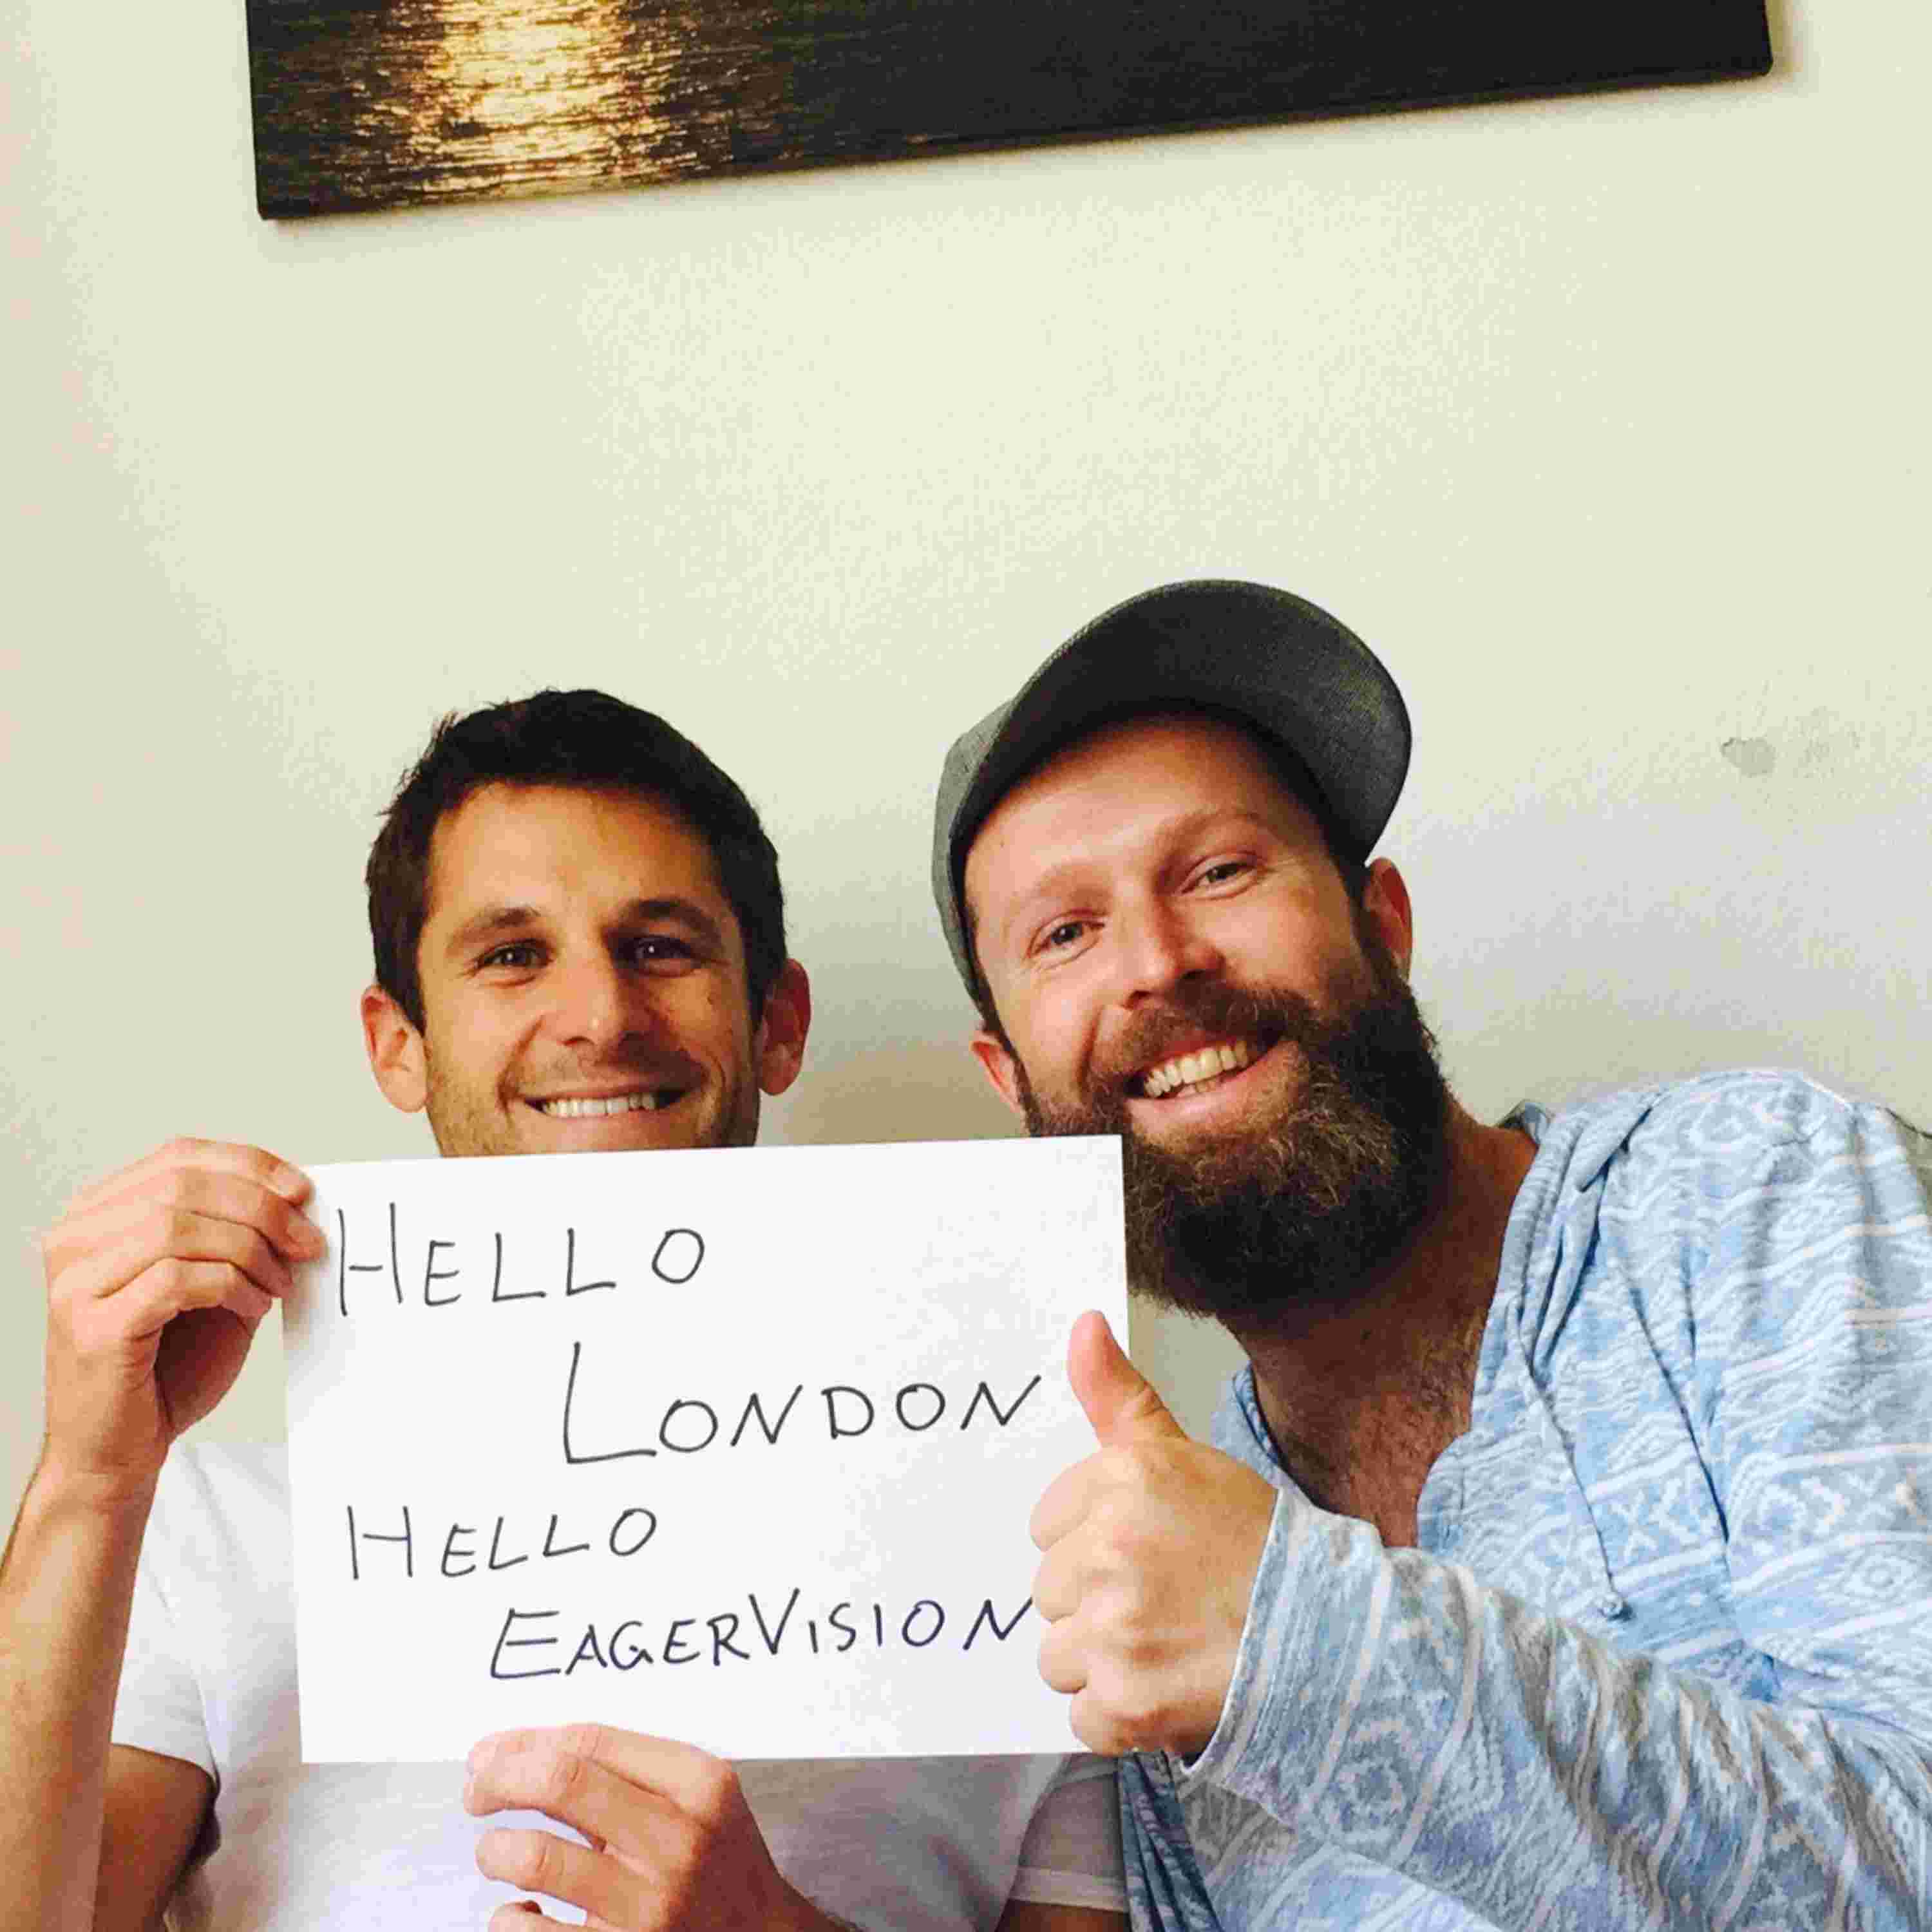 HELLO
LONDON
HELLO
EAGERVISION